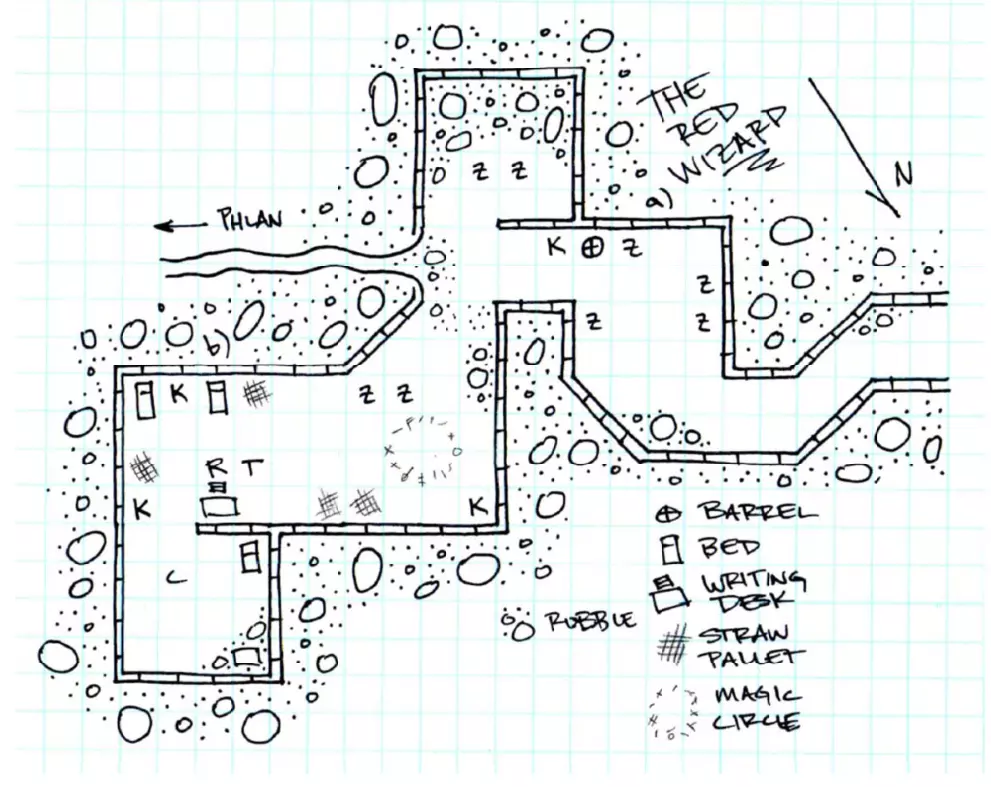 THE
RED
WIZARD
N
Z Z
a)
← PHLAN
K Z
Z
Z Z
b)
K
Z Z
R T
K K
C
BARREL
BED
WRITING
DESK
RUBBLE
STRAW
PALLET
MAGIC
CIRCLE